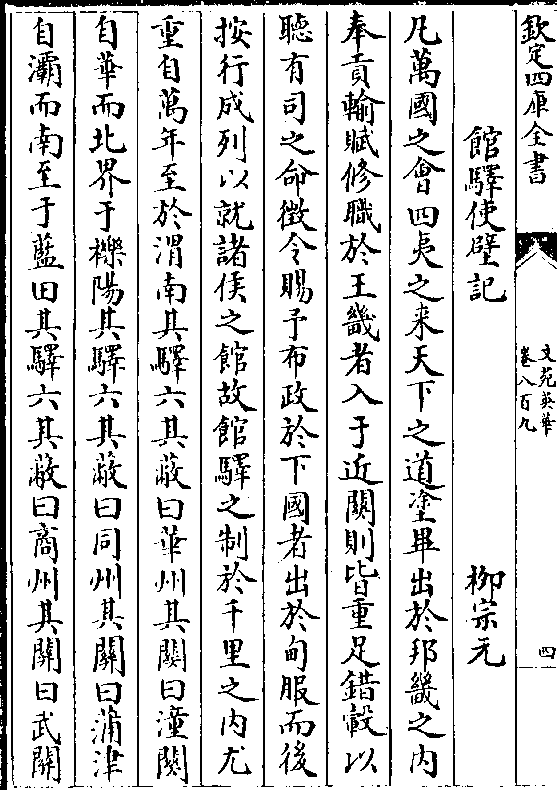 欽定四庫全書
文苑英華
卷八百九
四
館驛使壁記
柳宗元
凡萬國之會四夷之来天下之道塗畢出於邦畿之内
奉貢輸賦修職於王畿者入于近關則皆重足錯轂以
聽有司之命徴令賜予布政於下國者出於甸服而後
按行成列以就諸侯之館故館驛之制於千里之内尤
重自萬年至於渭南其驛六其蔽曰華州其關曰潼關
自華而北界于櫟陽其驛六其蔽曰同州其關曰蒲津
自灞而南至于藍田其驛六其蔽曰商州其關曰武關